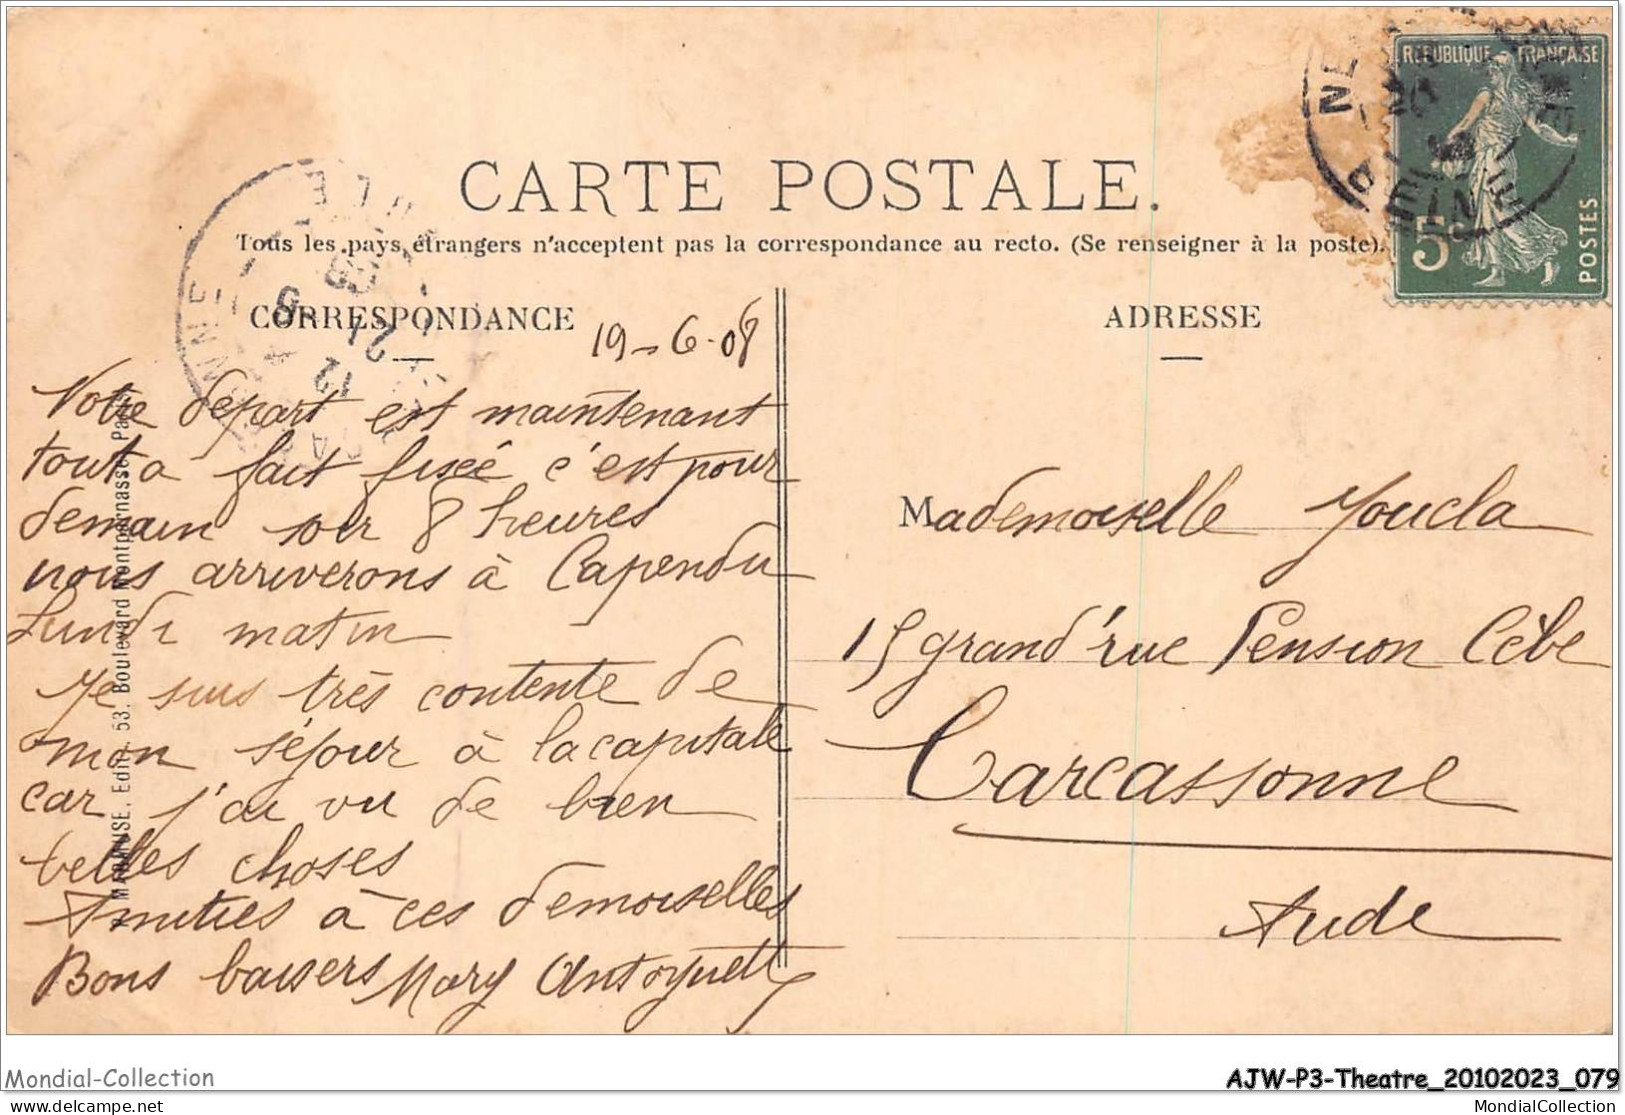 CARTE POSTALE.
Tous les pays étrangers n'acceptent pas la correspondance au recto. (Se renseigner à la poste).
RÉPUBLIQUE FRANÇAISE
5c
POSTES
SEINE
CORRESPONDANCE
19-6-08
Votre départ est maintenant
tout a fait fixée c'est pour
demain soir 8 heures
nous arriverons à Capendu
Lundi matin
Je suis très contente de
mon séjour à la capitale
car j'ai vu de bien
belles choses
Amitiés à ces demoiselles
Bons baisers Mary Antoynette
MARMUSE, Edit., 53, Boulevard Montparnasse, Paris
ADRESSE
Mademoiselle Youcla
15 grand'rue Pension Cèbe
Carcassonne
Aude
Mondial-Collection
delcampe.net
AJW-P3-Theatre_20102023_079
MondialCollection